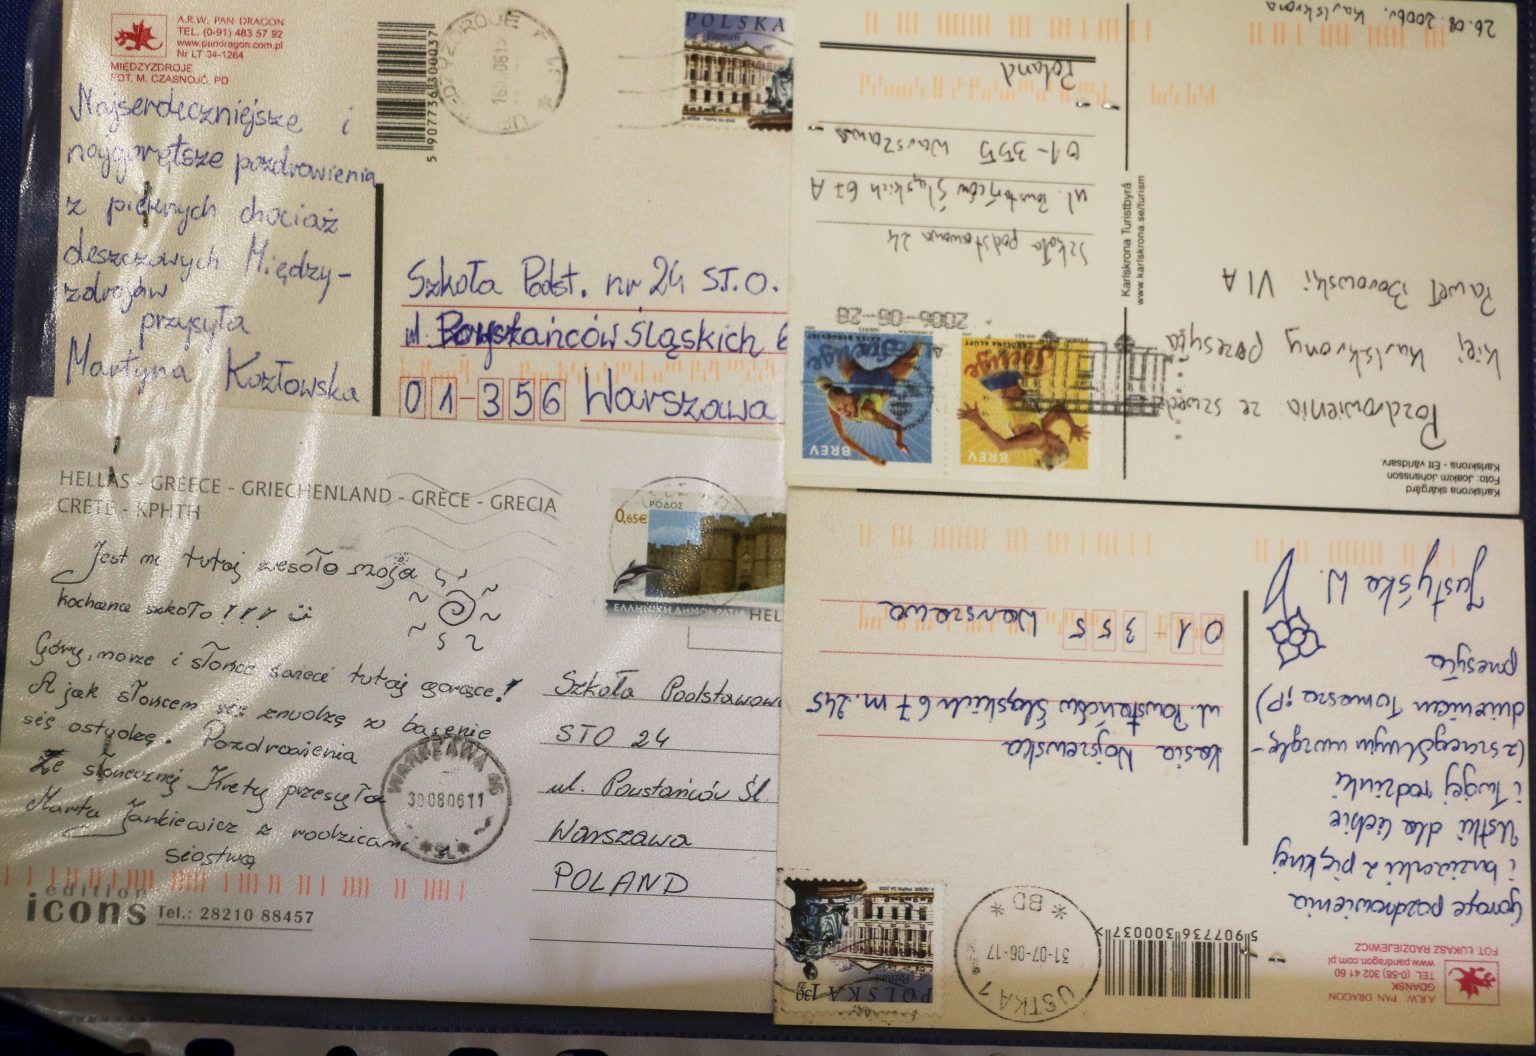 A.R.W. PAN DRAGON
TEL. (0-91) 483 57 92
www.pandragon.com.pl
Nr LT 34-1264
MIĘDZYZDROJE
FOT. M. CZASNOJĆ, PD
Najserdeczniejsze i
najgorętsze pozdrowienia
z pięknych chociaż
deszczowych Między-
zdrojów
przysyła
Martyna Kozłowska
5907736300037
POLSKA
Poznań
Szkoła Podst. nr 24 ST.O.
ul. Powstańców Śląskich 6
01-356 Warszawa
HELLAS - GREECE - GRIECHENLAND - GRÈCE - GRECIA
CRETE - KPHTH
Jest mi tutaj wesoło moja
kochana szkoło!!!
Góry, morze i słońce świeci tutaj gorące!
A jak słońcem się znudzę w basenie
się ostudzę. Pozdrowienia
Ze słonecznej Krety przesyła
Marta Jankiewicz z rodzicami i
siostrą
edition
icons Tel.: 28210 88457
ΡΟΔΟΣ
0,65€
ΕΛΛΗΝΙΚΗ ΔΗΜΟΚΡΑΤΙΑ HEL
WARSZAWA
30080611
Szkoła Podstawow
STO 24
ul. Powstańców Śl.
Warszawa
POLAND
26.08.2006r. Karlskrona
Pozdrowienia ze szwedz
kiej Karlskrony przesyła
Paweł Borowski VI A
Karlskrona skärgård
Foto: Joakim Johansson
Karlskrona - Ett världsarv.
Karlskrona Turistbyrå
www.karlskrona.se/turism
BREV
CAROLINA KLÜFT
BREV
KAJSA BERGQVIST
Sverige
2006-08-28
Szkoła podstawowa 24
ul. Powstańców Śląskich 67 A
01-355 Warszawa
Poland
A.R.W. PAN DRAGON
GDAŃSK
TEL (0-58) 302 41 60
www.pandragon.com.pl
FOT. ŁUKASZ RADZIEJEWICZ
Gorące pozdrowienia
i buziaczki z pięknej
Ustki dla Ciebie
i Twojej rodzinki
(z szczególnym uwzglę-
dnieniem Tomasza ;P)
przesyła
Justyśka W.
5907736300037
USTKA 1
31-07-06-17
* BD *
POLSKA 1,30 zł
Poznań
Kasia Wojszewska
ul. Powstańców Śląskich 67 m. 245
01-355 Warszawa